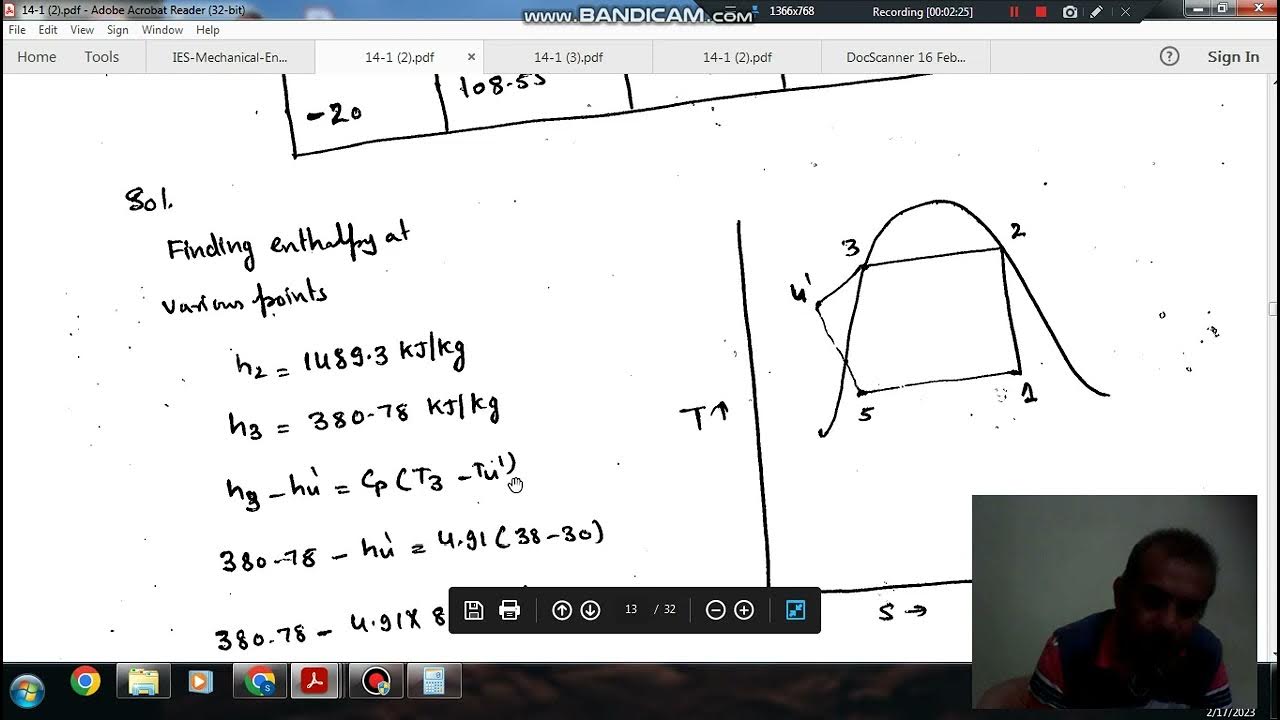 14-1 (2).pdf - Adobe Acrobat Reader (32-bit)
www.BANDICAM.com
1366x768
Recording [00:02:25]
File Edit View Sign Window Help
Home Tools IES-Mechanical-En... 14-1 (2).pdf × 14-1 (3).pdf 14-1 (2).pdf DocScanner 16 Feb... ? Sign In
-20
108.55
Sol.
Finding enthalpy at
various points
h2 = 1489.3 KJ/kg
h3 = 380.78 KJ/kg
h3 - h4' = Cp (T3 - T4')
380.78 - h4' = 4.91 (38-30)
380.78 - 4.91 X 8
2
3
4'
1
5
T↑
S →
13 / 32
2/17/2023